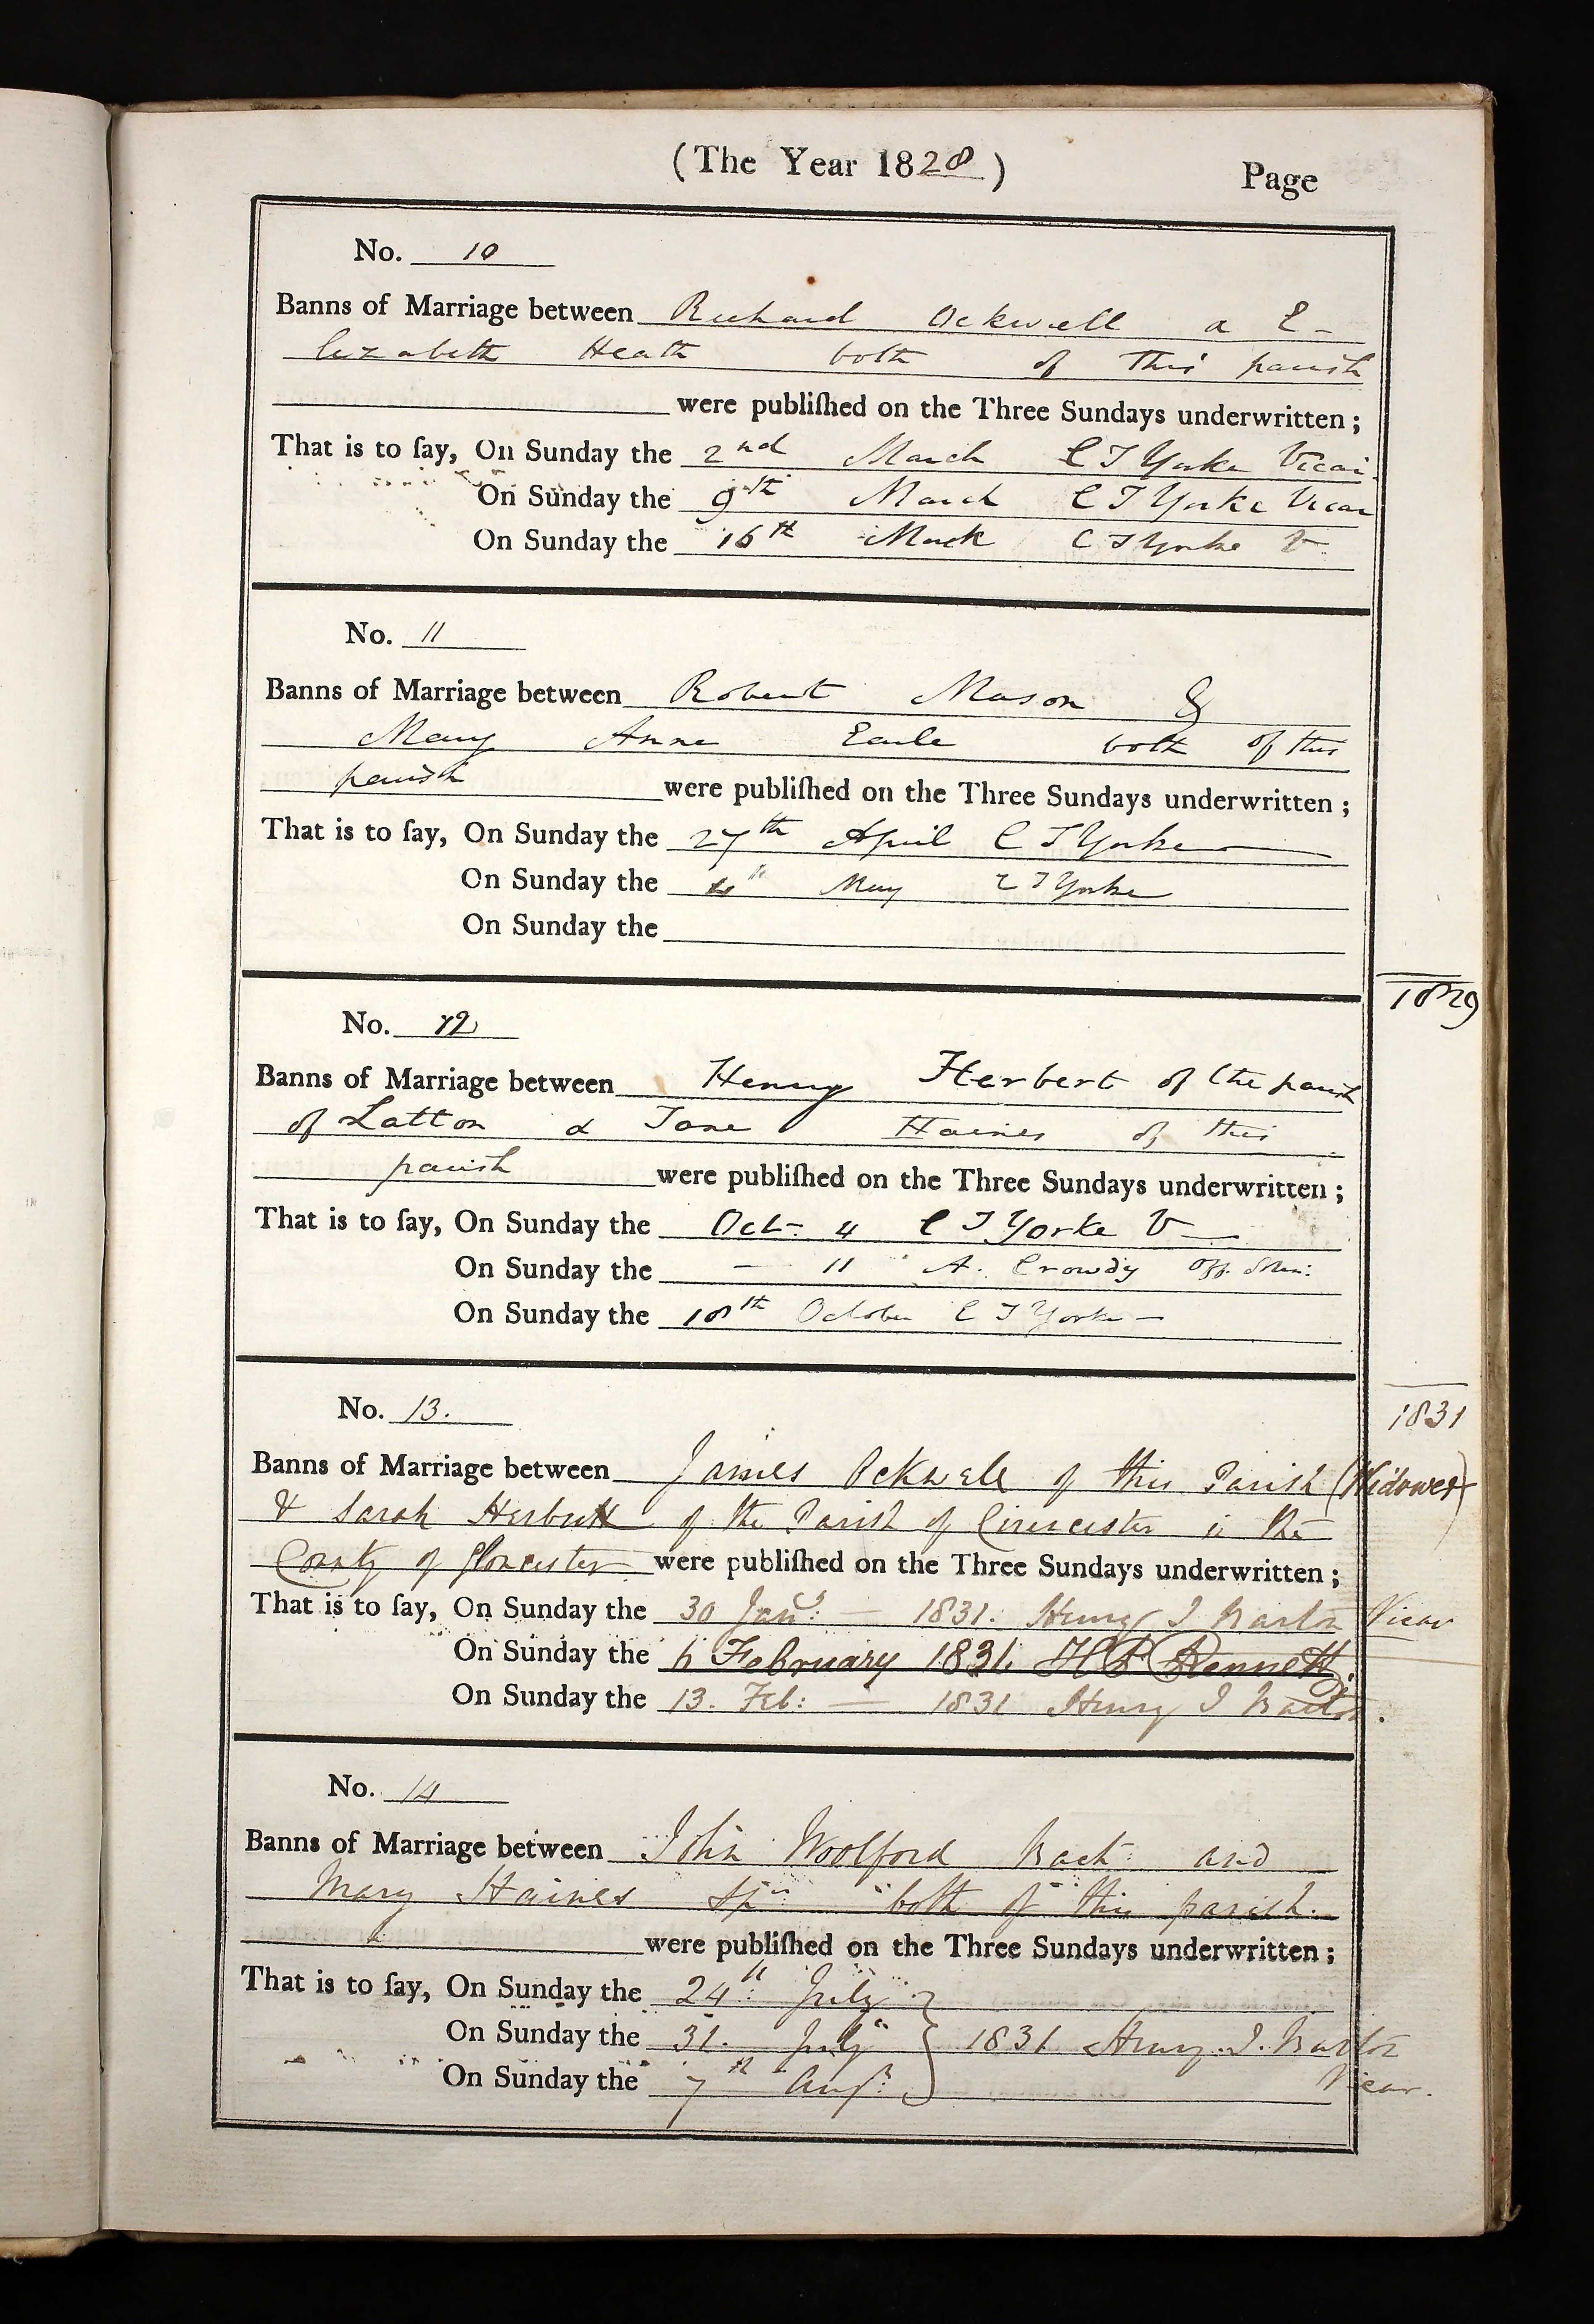 (The Year 1828) Page
No. 10
Banns of Marriage between Richard Ockwell a E-
lizabeth Heath both of this parish
were publiſhed on the Three Sundays underwritten;
That is to ſay, On Sunday the 2nd March C T Yorke Vicar
On Sunday the 9th March C T Yorke Vicar
On Sunday the 16th March C T Yorke V
No. 11
Banns of Marriage between Robert Mason &
Mary Anne Earle both of this
parish were publiſhed on the Three Sundays underwritten;
That is to ſay, On Sunday the 27th April C T Yorke
On Sunday the 4th May C T Yorke
On Sunday the
1829
No. 12
Banns of Marriage between Henry Herbert of the parish
of Latton & Jane Haines of this
parish were publiſhed on the Three Sundays underwritten;
That is to ſay, On Sunday the Oct. 4 C T Yorke V
On Sunday the — 11 A. Crowdy Off. Min:
On Sunday the 18th October C T Yorke —
1831
No. 13.
Banns of Marriage between James Ockwell of this Parish (Widower)
& Sarah Herbert of the Parish of Cirencester in the
County of Gloucester were publiſhed on the Three Sundays underwritten;
That is to ſay, On Sunday the 30 Jany: — 1831. Henry I Barton Vicar
On Sunday the 6 February 1831. H P Rennett
On Sunday the 13. Feb: — 1831 Henry I Barton.
No. 14
Banns of Marriage between John Woolford Bach: and
Mary Haines Spr both of this parish.
were publiſhed on the Three Sundays underwritten;
That is to ſay, On Sunday the 24th: July
On Sunday the 31. July } 1831 Henry. I. Barton
On Sunday the 7th Augt: Vicar.